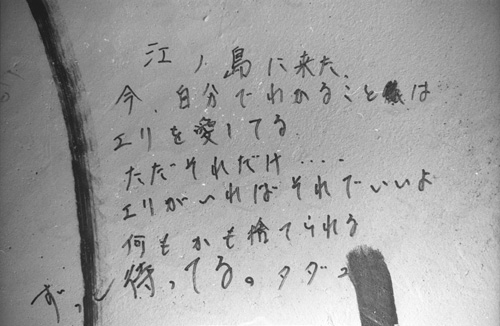 江ノ島に来た、
今、自分でわかることは
エリを愛してる
ただそれだけ‥‥
エリがいればそれでいいよ
何もかも捨てられる
ずっと待ってる。タダユ